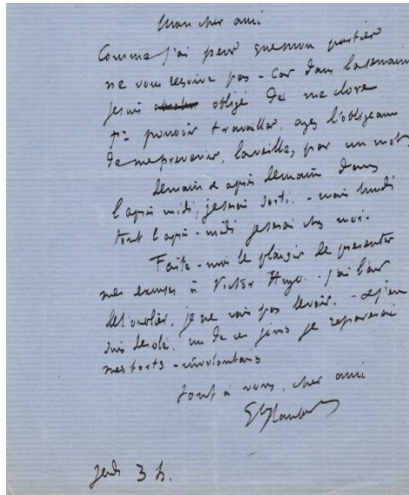 Mon cher ami
Comme j'ai peur que mon portier
ne vous reçoive pas - car dans la semaine
je suis obligé de me clore
pr pouvoir travailler, ayez l'obligeance
de me prévenir, la veille, par un mot.
Demain & après demain dans
l'après midi, je serai sorti. - mais lundi
tout l'après-midi je serai chez moi.
Faites-moi le plaisir de présenter
mes excuses à Victor Hugo. j'ai l'air
de l'oublier. je ne vais pas le voir. - & j'en
suis désolé. un de ces jours je réparerai
mes torts - involontaires
Tout à vous, cher ami
G Flaubert
jeudi 3 h.